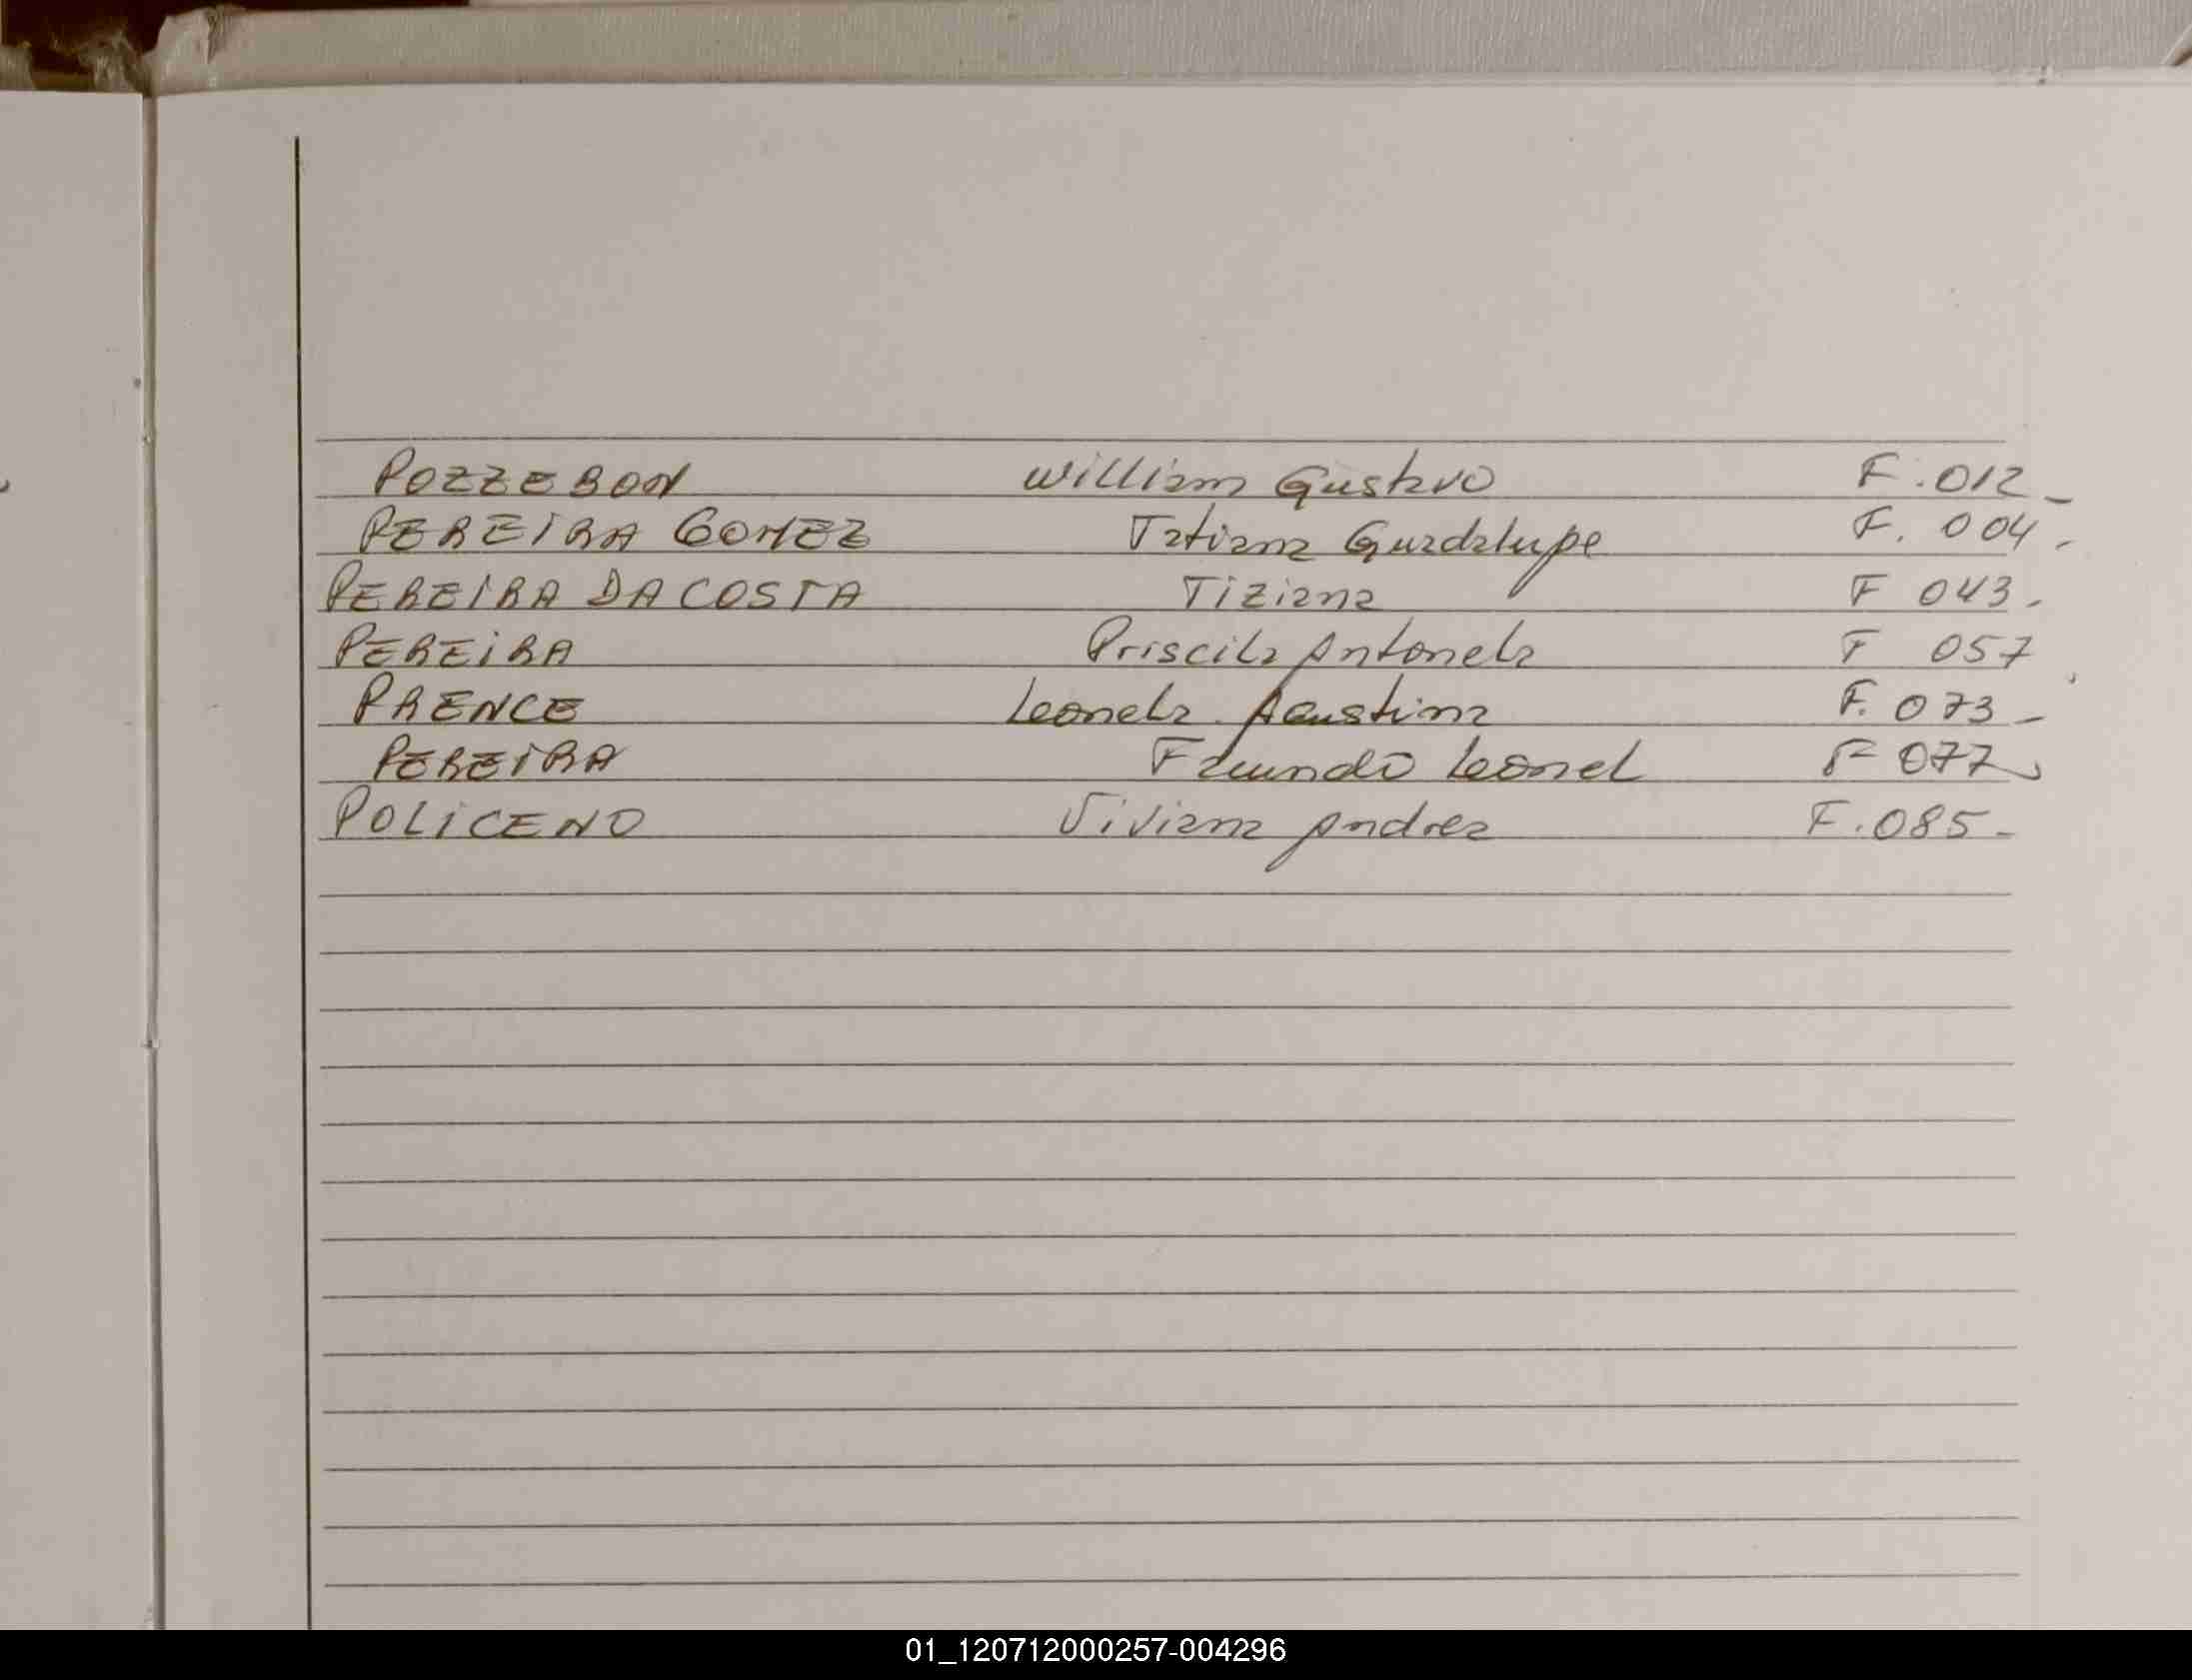 POZZEBON William Gustavo F.012_
PEREIRA GOMEZ Tatiana Guadalupe F. 004.
PEREIRA DA COSTA Tiziana F 043.
PEREIRA Priscila Antonela F 057
PRENCE Leonela Agustina F. 073_
PEREIRA Facundo Leonel F 077
POLICENO Viviana Andrea F.085_
01_120712000257-004296